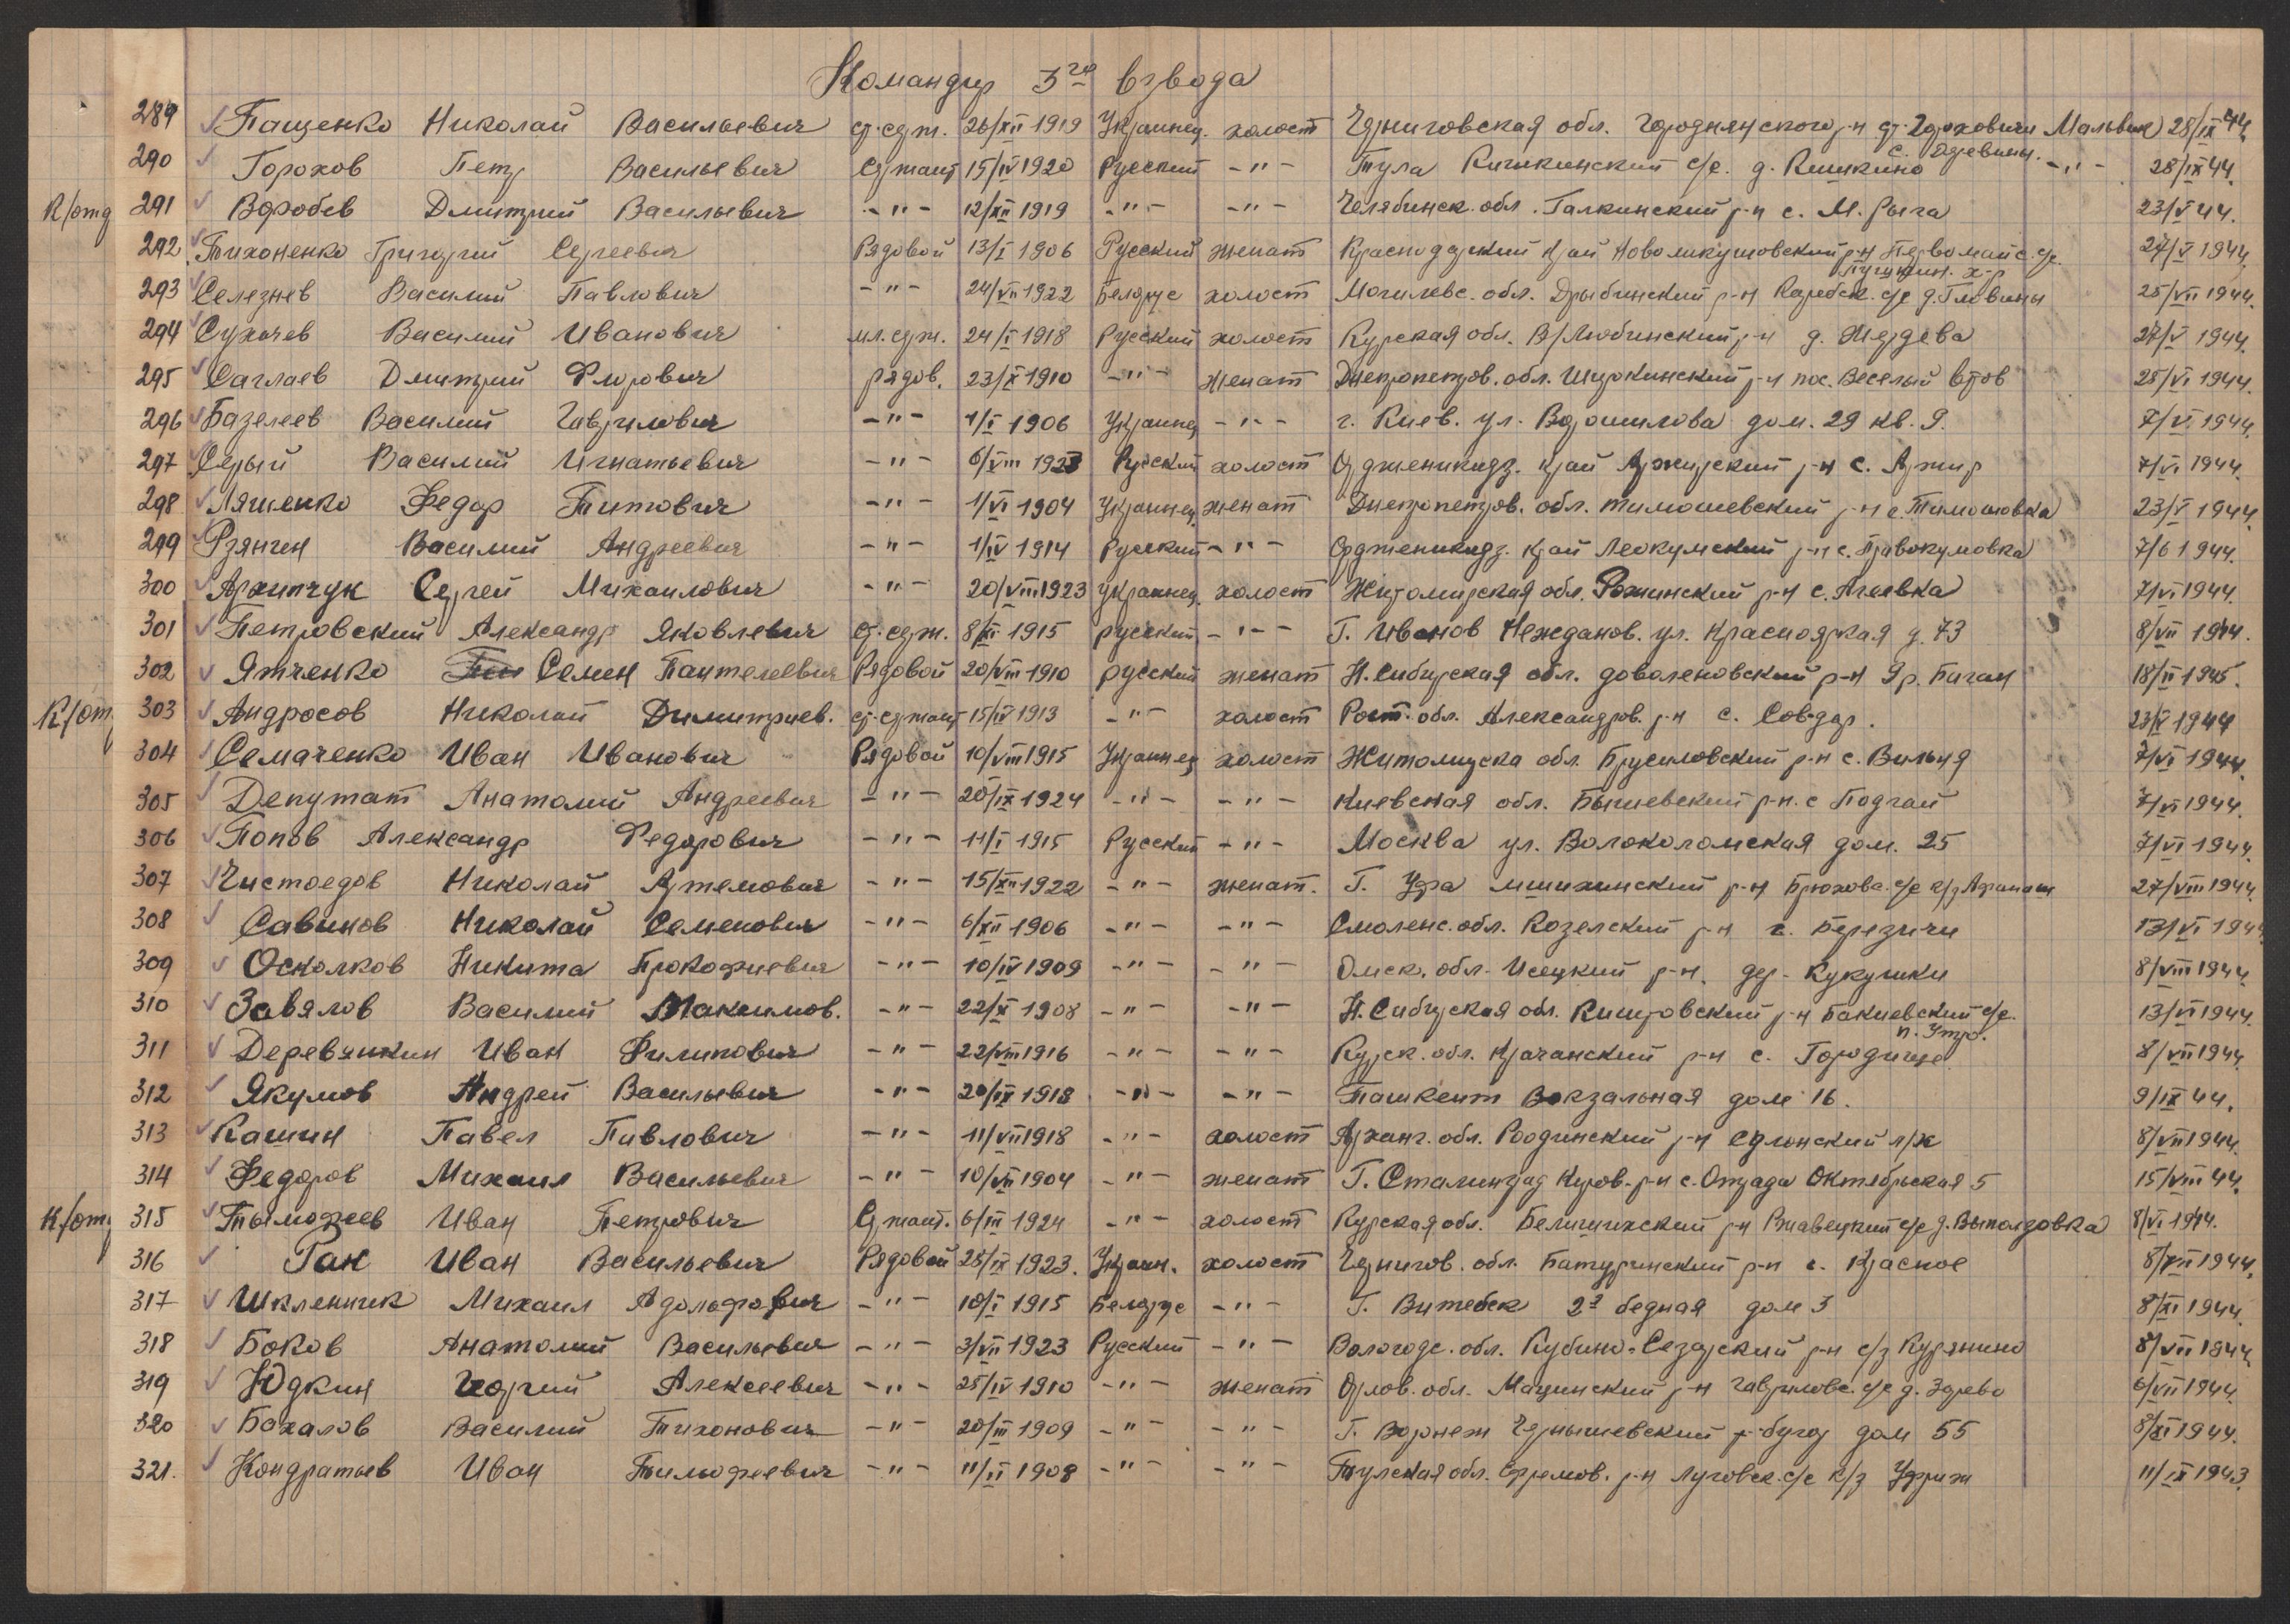 Командир 3го взвода
289 Пащенко Николай Васильевич ст. серж. 26/XII 1919 Украинец. холост Черниговская обл. Городнянского р-н Мальвик 28/IX 44.
с. Деревины.
290 Горохов Петр Васильевич Сержант 15/IV 1920 Русский -"- Тула Кишкинский с/с. д. Кишкино -"- 28/IX 44.
К/отд 291 Воробев Дмитрий Васильевич -"- 12/XII 1919 -"- -"- Челябинск. обл. Галкинский р-н с. М. Рыга 23/V 44.
292 Тихоненко Григорий Сергеевич Рядовой 13/I 1906 Русский женат Краснодарский край Новопокутовский р-н Первомайс. с/с. 27/V 1944.
Пушкин. х-р
293 Селезнев Василий Павлович -"- 24/VII 1922 Белорус холост Могилевс. обл. Дрыбинский р-н с/с д. Гловины 25/VII 1944.
294 Сухочев Василий Иванович мл. серж. 24/I 1918 Русский холост Курская обл. В/Любинский р-н д. Жердева 27/V 1944.
295 Саглаев Дмитрий Флорович рядов. 23/X 1910 -"- женат Днепропетров. обл. Широкинский р-н пос. Веселый втов 25/VI 1944.
296 Базелеев Василий Гаврилович -"- 1/I 1906 Украинец -"- г. Киев. ул. Ворошилова дом. 29 кв. 9. 7/VI 1944.
297 Серый Василий Игнатьевич -"- 6/VIII 1923 Русский холост Орджениkидз. край Арзгирский р-н с. Арзгир 7/VI 1944.
298 Ляшенко Федор Титович -"- 1/VI 1904 Украинец. женат Днепропетров. обл. Тимошевский р-н с. Тимошовка 23/V 1944.
299 Рзянген Василий Андреевич -"- 1/IV 1914 Русский -"- Орджениkидз. край Леокумский р-н с. Правокумовка 7/6 1944.
300 Архипчук Сергей Михаилович -"- 20/VIII 1923 украинец. холост Житомирская обл. Ружинский р-н с. Агеевка 7/VI 1944.
301 Петровский Александр Яковлевич ст. серж. 8/XI 1915 русский -"- Г. Иванов Нежданов. ул. Красноярская д. 73 8/VII 1944.
302 Ятченко Семен Пантелеевич Рядовой 20/VIII 1910 русский женат Н. Сибирская обл. доволеновский р-н Яр. Баган 18/II 1945.
К/от 303 Андросов Николай Димитриев. ст. сержант 15/IV 1913 -"- холост Рост. обл. Александров. р-н с. Сов-дар. 23/V 1944
304 Семаченко Иван Иванович Рядовой 10/VIII 1915 Украинец холост Житомирска обл. Брусиловский р-н с. Вильня 7/VI 1944.
305 Депутат Анатолий Андреевич -"- 20/IX 1924 -"- -"- Киевская обл. Бышевский р-н. с Подгай 7/VI 1944.
306 Попов Александр Федорович -"- 11/I 1915 Русский -"- Москва ул. Волоколомская дом. 25 7/VI 1944.
307 Чистоедов Николай Артемович -"- 15/XII 1922 -"- женат. Г. Уфа мишкинский р-н Брюхова. с/с 27/VIII 1944.
308 Савинов Николай Семенович -"- 6/XII 1906 -"- -"- Смоленс. обл. Козелский р-н с. Березичи 13/VI 1944
309 Осколков Никита Прокофиевич -"- 10/IV 1909 -"- -"- Омск. обл. Исецкий р-н. дер. Кукушки 8/VIII 1944.
310 Завялов Василий Максимов. -"- 22/X 1908 -"- -"- Н. Сибирская обл. Киштовский р-н Бакиевский с/с. 13/VI 1944.
п. Утро.
311 Деревянкин Иван Филипович -"- 22/VIII 1916 -"- -"- Курск. обл. Крачанский р-н с. Городище 8/VII 1944.
312 Якумов Андрей Васильевич -"- 20/IX 1918 -"- -"- Ташкент Вокзальная дом 16. 9/IX 44.
313 Кашин Павел Павлович -"- 11/VII 1918 -"- холост Арханг. обл. Роодинский р-н л/х 8/VII 1944.
314 Федоров Михаил Васильевич -"- 10/VII 1904 -"- женат Г. Сталинград Киров. р-н с. Отрада Октябрьская 5 15/VIII 44.
К/отд 315 Тымофеев Иван Петрович Сржант. 6/III 1924 -"- холост Курская обл. Белишихский р-н Ржавецкий с/с д. Выползовка 8/VI 1944.
316 Ган Иван Васильевич Рядовой 28/IX 1923. Украин. холост Чернигов. обл. Батуринский р-н с. Красное 8/XII 1944.
317 Шкленник Михаил Адольфович -"- 10/I 1915 Белорус -"- Г. Витебск 2я бедная дом 3 8/XI 1944.
318 Боков Анатолий Васильевич -"- 3/VII 1923 Русский -"- Вологодс. обл. Кубино-Сезарский р-н с/з Курянино 8/VII 1944
319 Юдкин Георгий Алексеевич -"- 25/IV 1910 -"- женат Орлов. обл. Мацинский р-н Гаврилове. с/с д. Зорево 6/VII 1944.
320 Бохалов Василий Тихонович -"- 20/III 1909 -"- -"- Г. Ворнеж Чернышевский р-бугор дом 55 8/XI 1944.
321. Кондратьев Иван Тимофеевич -"- 11/II 1908 -"- -"- Тулская обл. Ефремов. р-н Луговск. с/с к/з Уфриж 11/IX 1943.